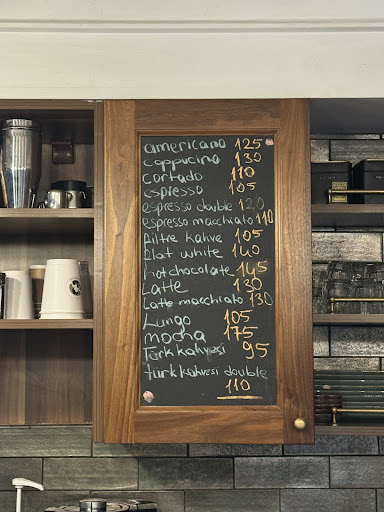 americano 125
cappucino 130
cortado 110
espresso 105
espresso double 120
espresso macchiato 110
filtre kahve 105
flat white 140
hotchocolate 145
Latte 130
Latte macchiato 130
Lungo 105
mocha 175
Türk kahvesi 95
türk kahvesi double
110